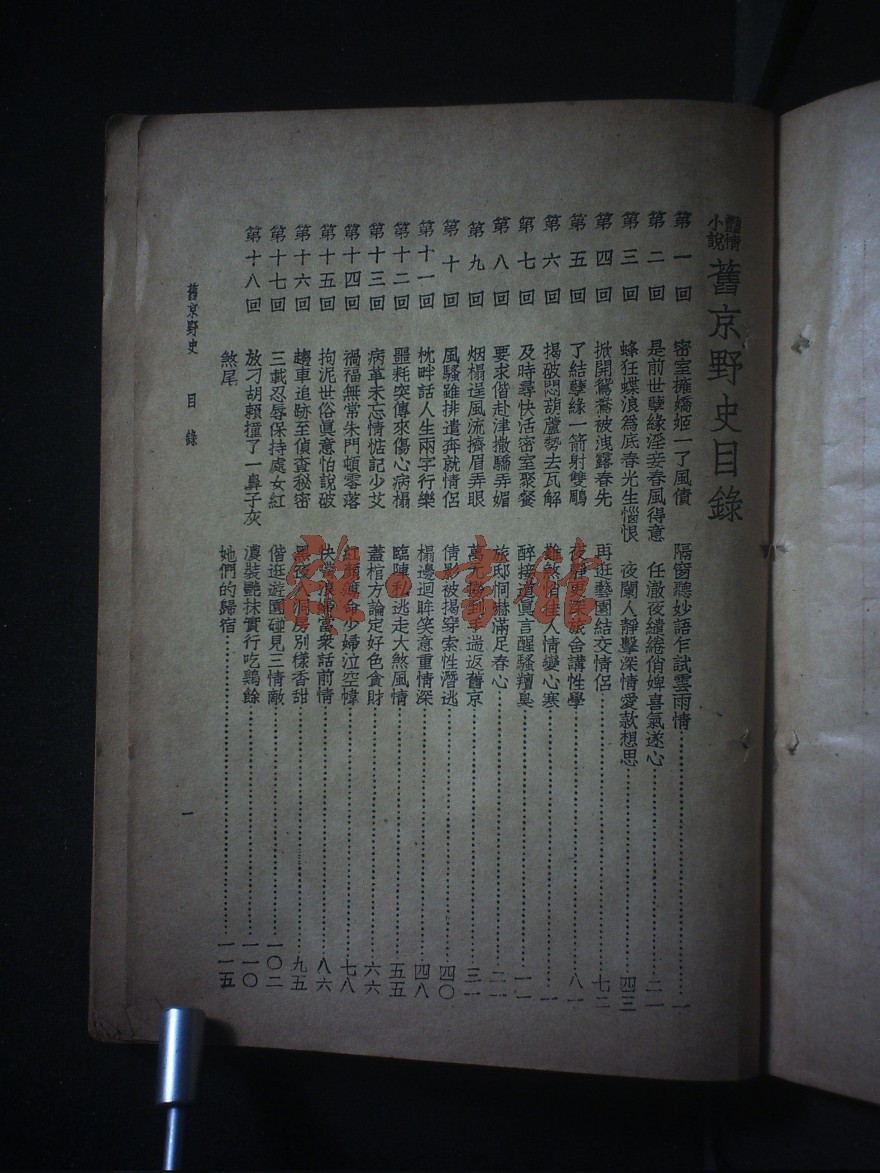 小說
舊京野史目錄
第一回 密室擁嬌姬一了風債 隔窗聽妙語乍試雲雨情 一
第二回 是前世孽緣淫妾春風得意 任澈夜繾綣俏婢喜氣遂心 二一
第三回 蜂狂蝶浪爲底春光生惱恨 夜闌人靜擊深情愛款想思 四三
第四回 掀開鴛鴦被洩露春先 再逛藝園結交情侶 七二
第五回 了結孽緣一箭射雙鵰 夜靜更深旅舍講性學 八一
第六回 揭破悶葫蘆勢去瓦解 難煞俏佳人情變心寒 一
第七回 及時尋快活密室聚餐 醉接道眞言醒騷羶臭 一一
第八回 要求偕赴津撒驕弄媚 旅邸恫嚇滿足春心 二一
第九回 烟榻逞風流擠眉弄眼 萬元 到手 返舊京 三一
第十回 風騷雖排遣奔就情侶 倩影被揭穿索性潛逃 四〇
第十一回 枕畔話人生兩字行樂 榻邊迴眸笑意重情深 四八
第十二回 噩耗突傳來傷心病榻 臨陣私逃走大煞風情 五五
第十三回 病革未忘情惦記少艾 蓋棺方論定好色貪財 六六
第十四回 禍福無常朱門頓零落 紅顏薄命少婦泣空幃 七八
第十五回 拘泥世俗眞意怕說破 快 浪 當衆話前情 八六
第十六回 趨車追跡至偵查秘密 黑夜入洞房別樣香甜 九五
第十七回 三載忍辱保持處女紅 偕逛遊園碰見三情敵 一〇二
第十八回 放刁胡賴撞了一鼻子灰 濃裝艷抹實行吃鷄餘 一一〇
煞尾 她們的歸宿 一一五
舊京野史 目錄 一